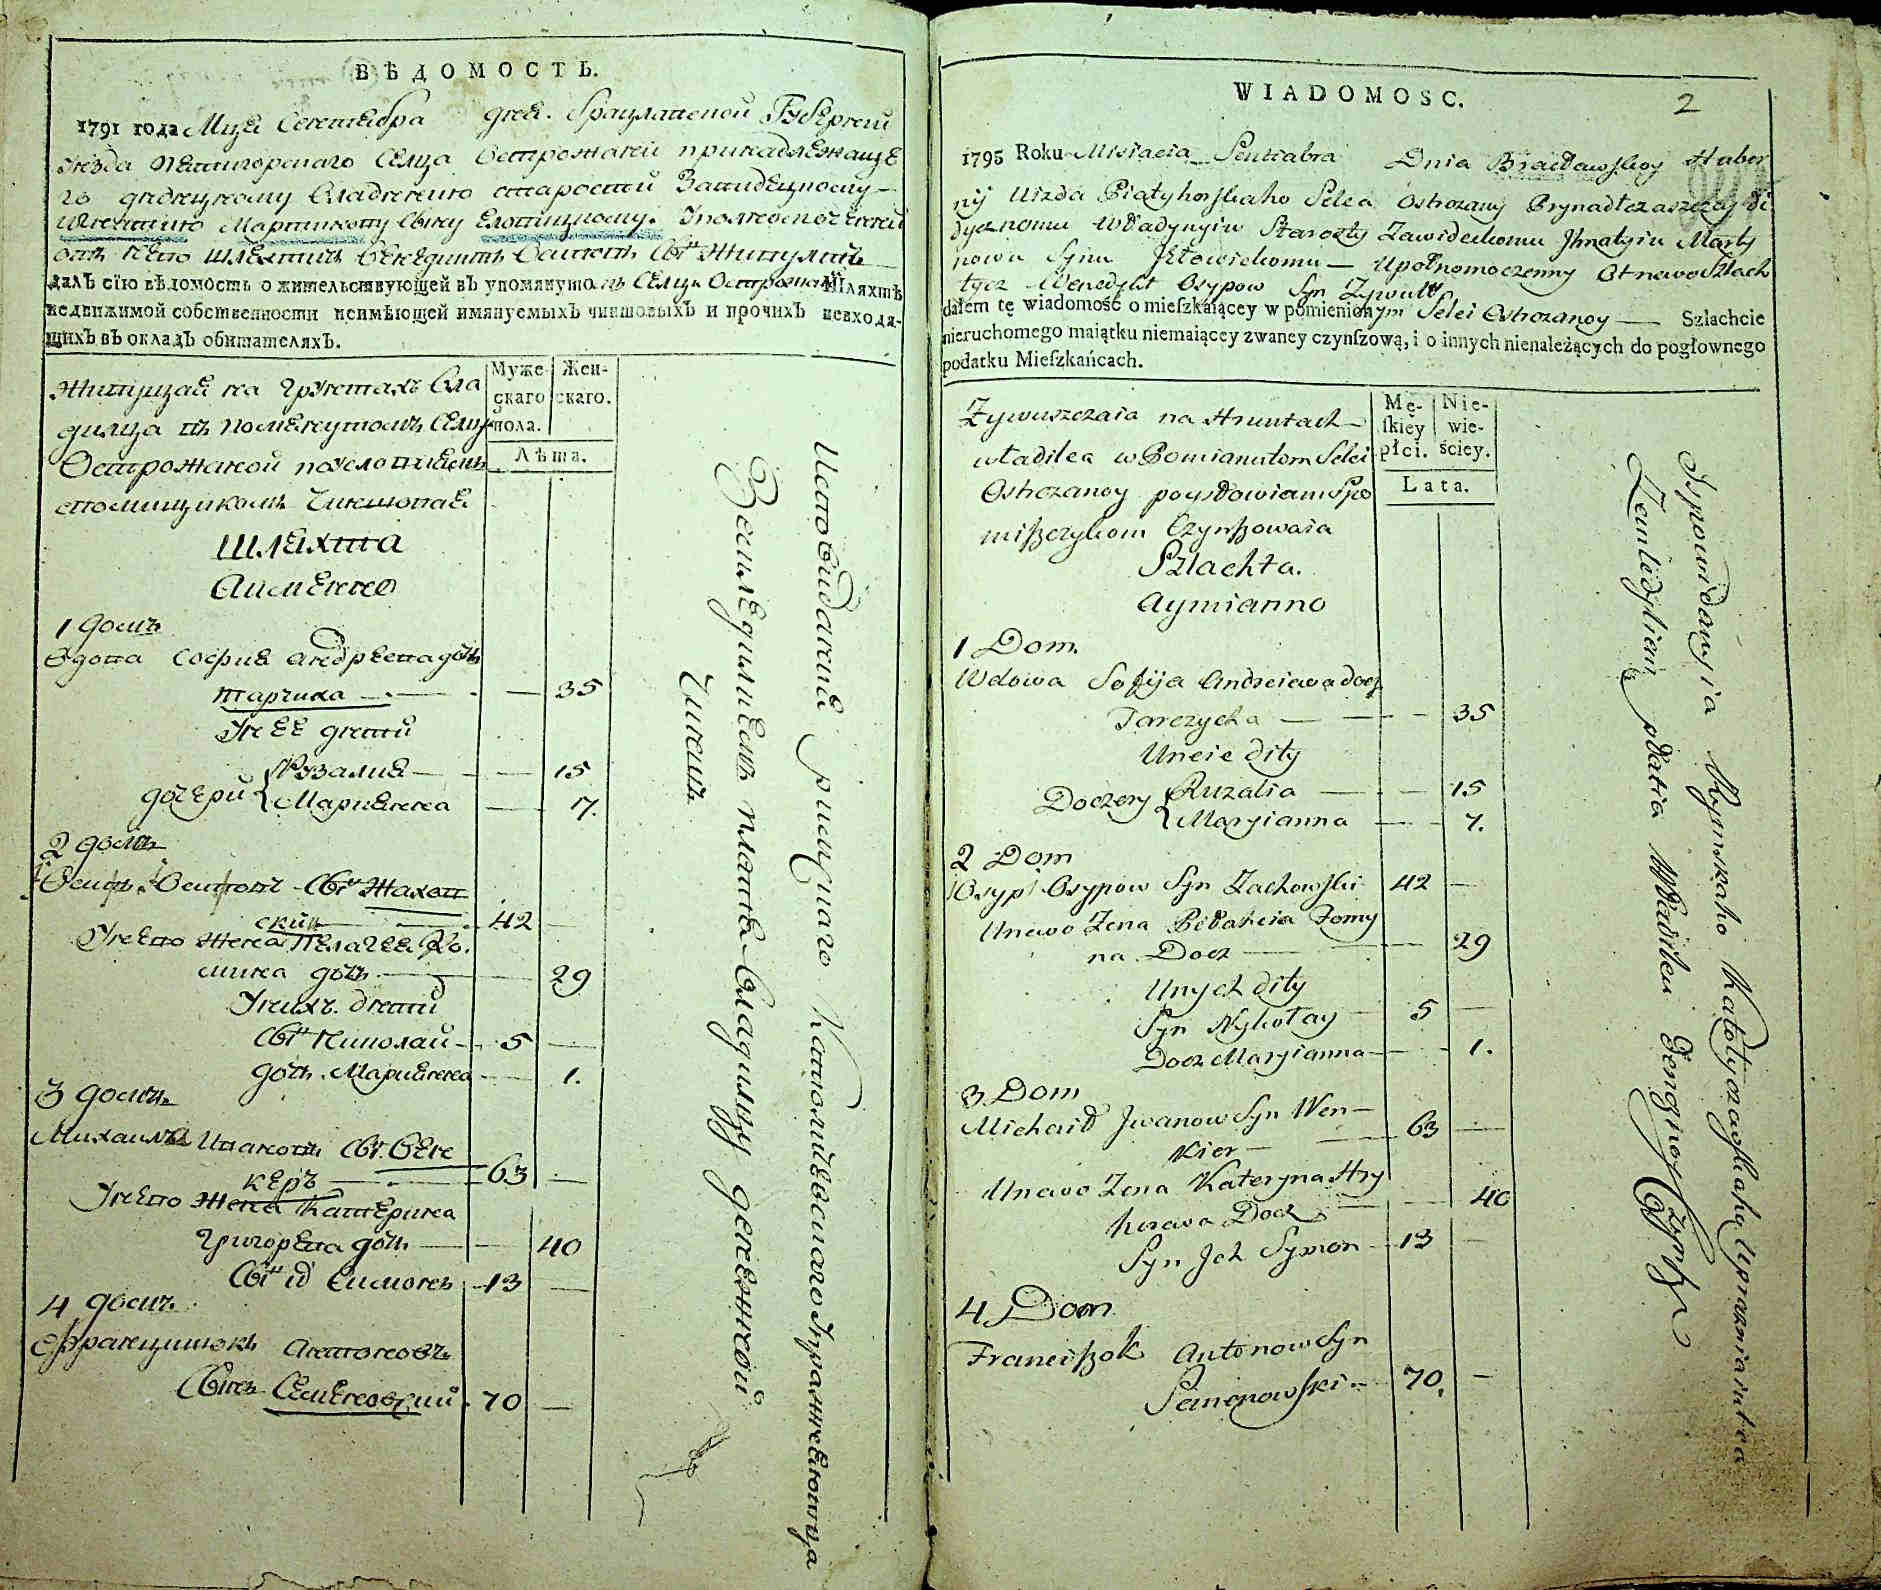 ВѢДОМОСТЬ.
1791 года Мца Сентября дня. Брацлавской Губернїи
уезда Пятигорскаго Селца Острожаней принадлежаще
го дидечному Владению старосты Завидецкому
Игнатию Мартинову Сыну Еловицкому. Уполномоченний
отъ Нево шляхтичъ Бенедиктъ Осиповъ Сынъ Живултъ
далъ сїю вѣдомость о жительствующей въ упомянутомъ Селци Острожаной Шляхтѣ
недвижимой собственности неимѣющей имянуемыхъ чиншовыхъ и прочихъ невходя-
щихъ въ окладъ обитателяхъ.
Живущай на грунтахъ Вла
дилца въ Помянутомъ Селцѣ
Острожаной поусловиямъ
спомищикомъ Чиншовая
шляхта
Аимянно
Муже-
скаго
пола.
Жен-
скаго.
Лѣта.
1 домъ
Вдова София Андреева дочъ
Тарчиха — — 35
Унее дети
дочери { Рузалия — — 15
Марианна — — 7.
2 домъ
Осипъ Осиповъ Сынъ Жахов
ский — 42 —
Унево Жена Пелагея Хо.
мина дочъ — 29
Унихъ дети
Сынъ Николай — 5 —
дочъ Марианна — — 1.
3 домъ
Михаилъ Ивановъ Сынъ Вен
керъ — 63 —
Унево Жена Катерина
Григорева дочъ — — 40
Сынъ ихъ Симонъ — 13 —
4 домъ
Францишокъ Антоновъ
Сынъ Семеновский. 70 —
Исповидания римскаго Католическаго Упражняютца
Земледилиемъ платя Владилцу денежной
Чиншъ
WIADOMOSC.
2
1795 Roku Misiacia Sentiabra Dnia Bracławskoy Huber
nij Uizda Piatyhorskaho Selca Ostrozanoy Prynadłezaszczoy di
dycznomu Władynyiu Starosty Zawideckomu Jhnatyiu Marty
nowu Synu Jełowickomu — Upołnomoczenny Otnewo Szlach
tycz Benedykt Osypow Syn Zywułt
dałem tę wiadomość o mieſzkaiącey w pomienionym Selci Ostrozanoy — Szlachcie
nieruchomego maiątku niemaiącey zwaney czynſzową, i o innych nienależących do pogłownego
podatku Mieſzkańcach.
Zywuszczaia na Hruntach
władilca w Pomianutom Selci
Ostrozanoy pousłowiam spo
miszczykom Czynszowaia
Szlachta.
Aymianno
Mę-
ſkiey
płci.
Nie-
wie-
ściey.
Lata.
1 Dom.
Wdowa Sofija Andreiewa docz
Tarczycha — — 35
Uneie dity
Doczery { Ruzalia — — 15
Maryianna — — 7.
2 Dom
Osyp Osypow Syn Zachowski 42 —
Unewo Zena Pełaheia Homy
na Docz — — 29
Unych dity
Syn Nykołay — 5 —
Docz Maryianna — — 1.
3 Dom
Michaił Jwanow Syn Wen —
kier — 63 —
Unewo Zena Kateryna Hry
horewa Docz — — 40
Syn Jch Symon — 13 —
4 Dom
Franciszok Antonow Syn
Semenowski — 70. —
Jspowidanyia Rymskaho Katołyczaskaho Uprazniaiutca
Zemledyliem płatia Władilcu Deneznoy Czynsz